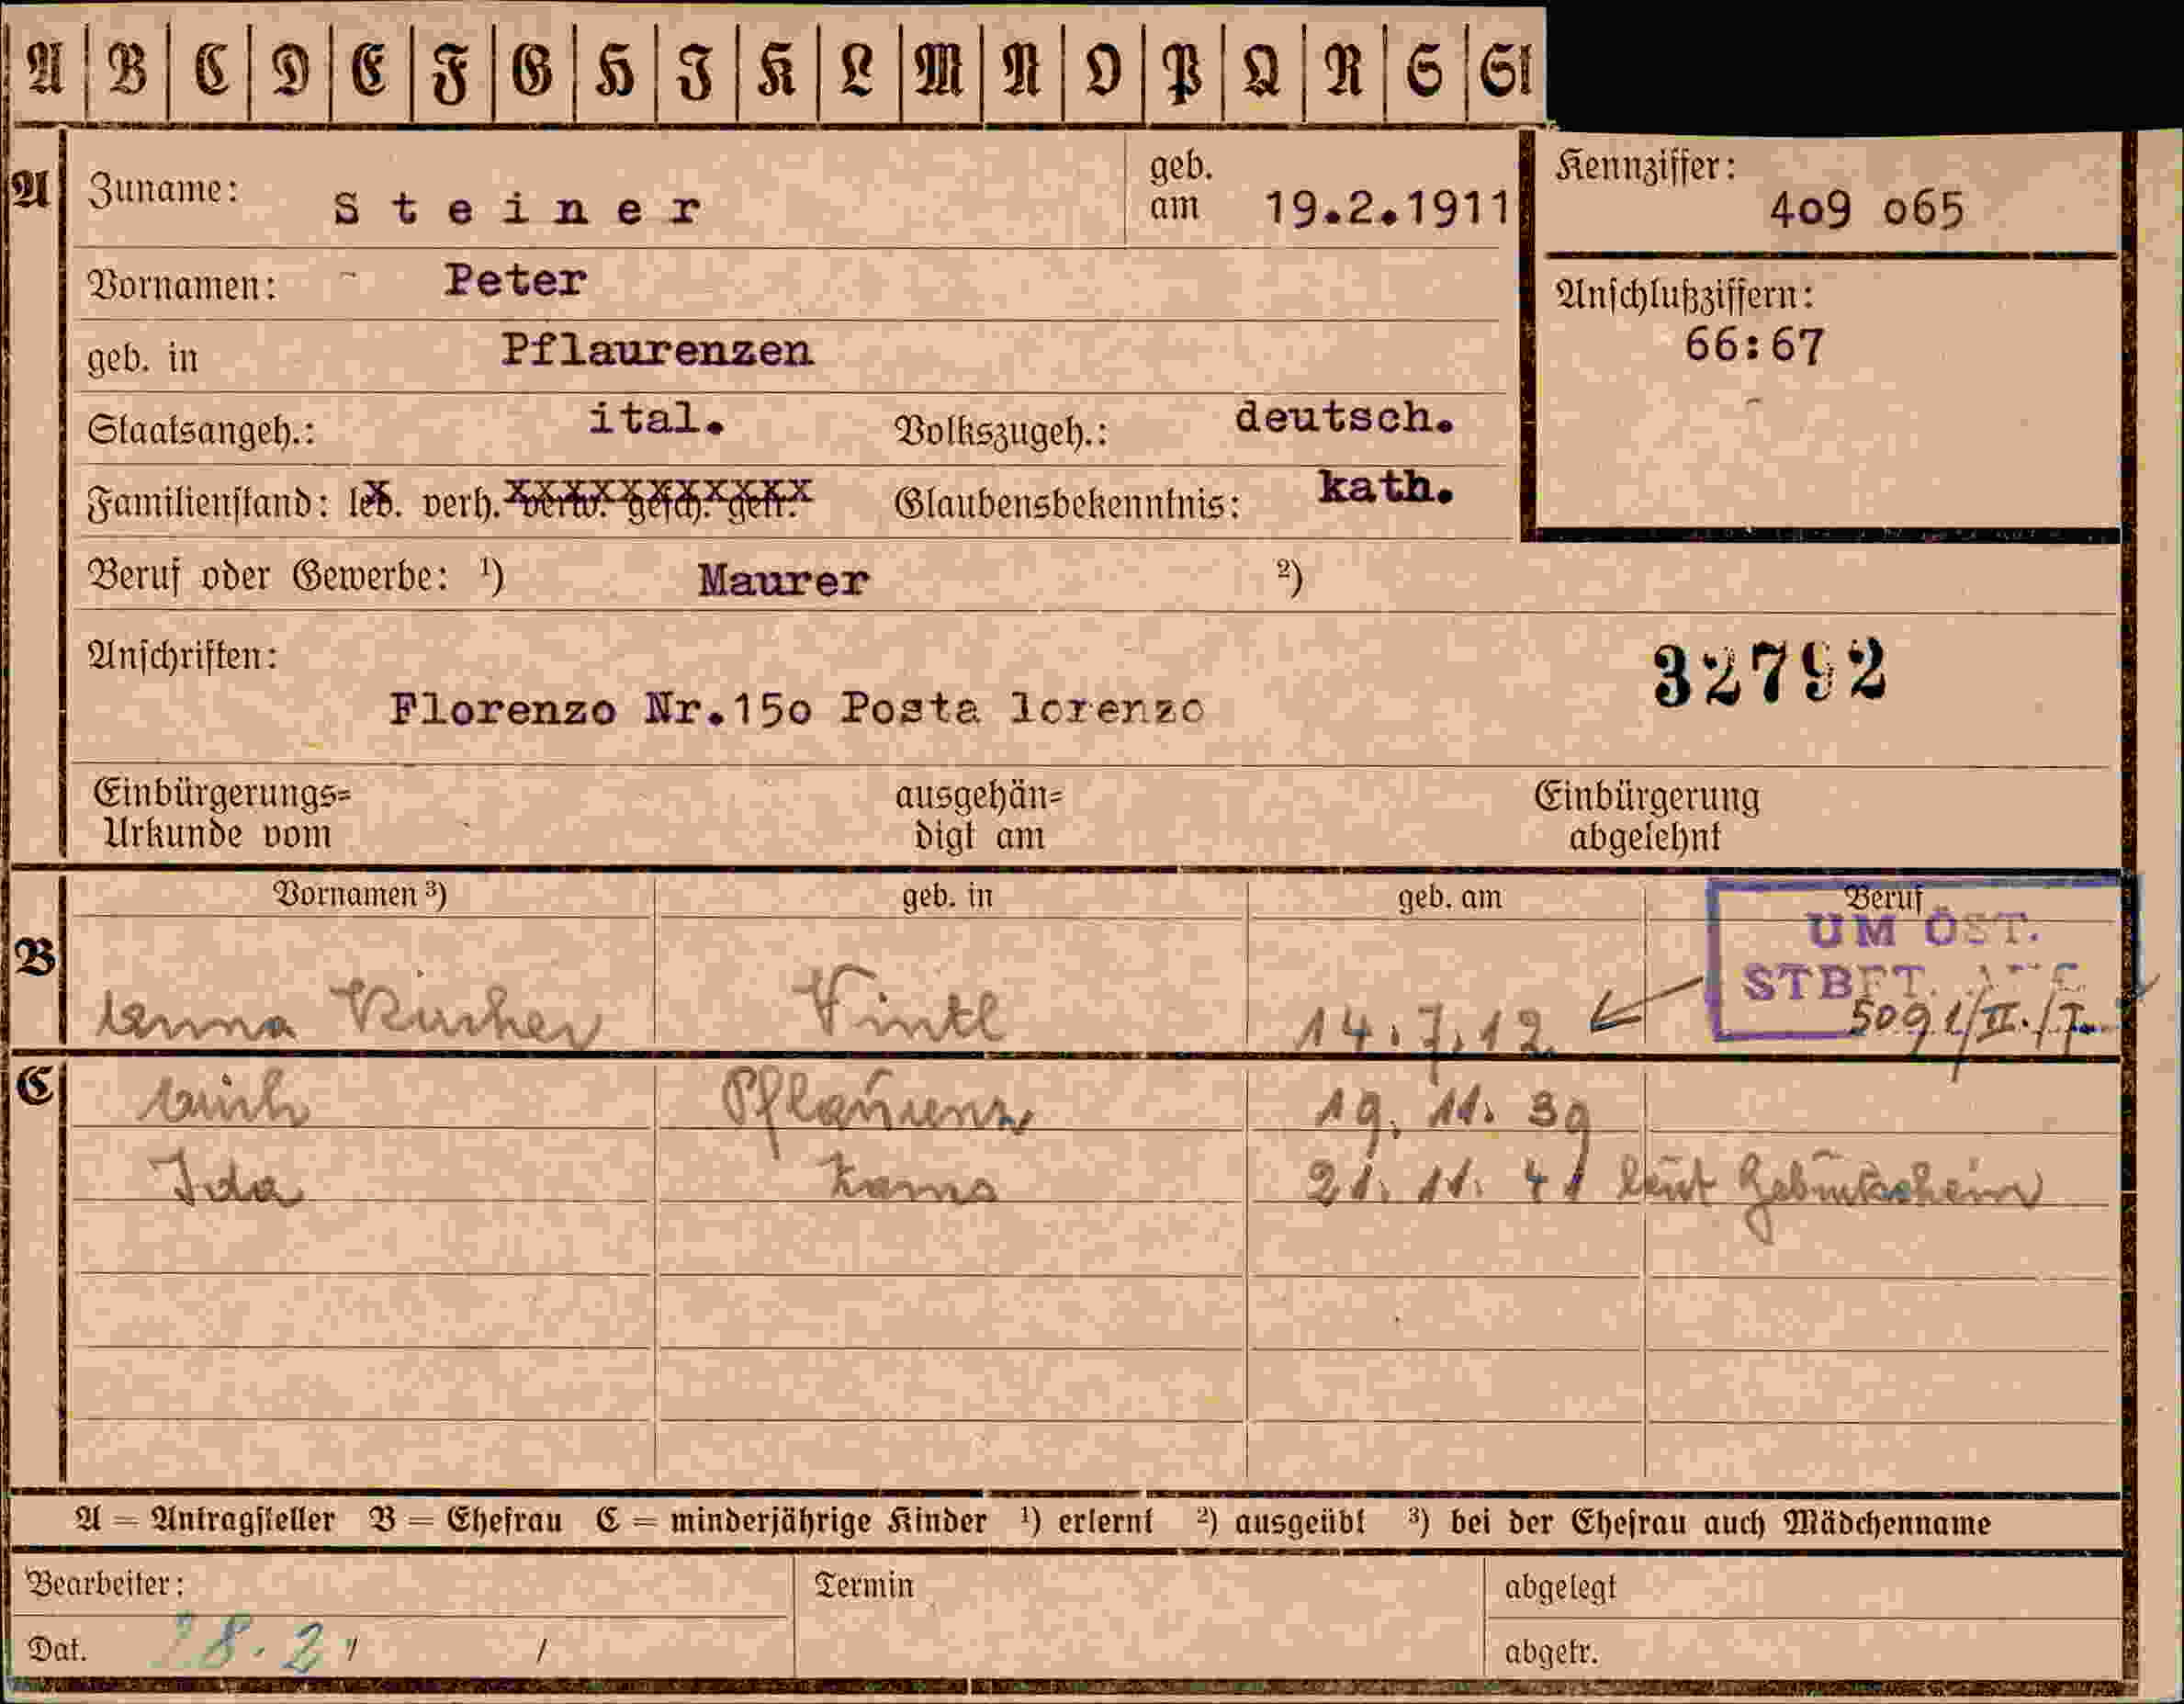 A B C D E F G H J K L M N O P Q R S St
A
Zuname: Steiner
geb. am 19.2.1911
Kennziffer: 4o9 o65
Vornamen: Peter
Anschlußziffern: 66:67
geb. in Pflaurenzen
Staatsangeh.: ital. Volkszugeh.: deutsch.
Familienstand: verh. Glaubensbekenntnis: kath.
Beruf oder Gewerbe: ¹) Maurer ²)
Anschriften: 32792
Florenzo Nr.15o Posta lorenzo
Einbürgerungs= Urkunde vom ausgehän= digt am Einbürgerung abgelehnt
Vornamen ³) geb. in geb. am Beruf
UM ÖST.
B
Anna Vintl 14.7.12 5091/II./T.
C
Pflaurenz 19. 11. 39
Ida Zams 21. 11. 41 laut Geburtsschein
A = Antragsteller B = Ehefrau C = minderjährige Kinder ¹) erlernt ²) ausgeübt ³) bei der Ehefrau auch Mädchenname
Bearbeiter: Termin abgelegt
Dat. 28.2 / / abgetr.